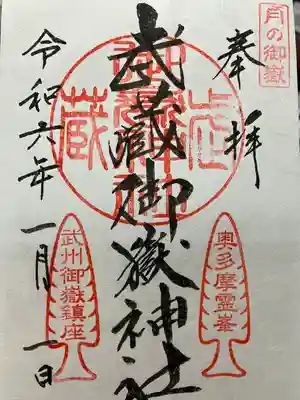 月の御嶽
奉拝
武蔵御嶽神社
奥多摩霊峯
武州御嶽鎮座
令和六年一月一日